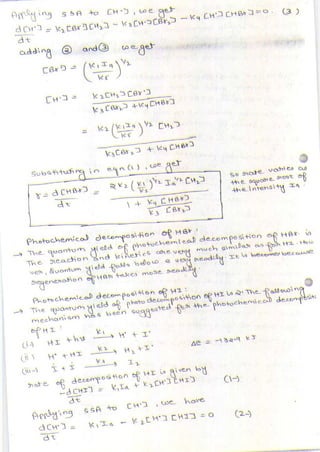 Applying SSA to [H·], we get
d[H·]/dt = k2[Br·][H2] - k3[H·][Br2] - k4[H·][HBr] = 0. (3)
adding (2) and (3) we get
[Br·] = (k1Ia/k5)^1/2
[H·] = k2[H2][Br·] / k3[Br2] + k4[HBr]
= k2 (k1Ia/k5)^1/2 [H2] / k3[Br2] + k4[HBr]
Substituting in eqn(1), we get
r = d[HBr]/dt = 2k2 (k1/k5)^1/2 Ia^1/2 [H2] / 1 + k4[HBr]/k3[Br2]
so rate varies as
the square root of
the Intensity Ia.
Photochemical decomposition of HBr:
→ The quantum yield of photochemical decomposition of HBr is
The reaction and kinetics are very much similar as for H2.
quantum yield falls below readily. It is because
regeneration of HBr takes more readily
Photochemical decomposition of HI:
→ The quantum yield of photo decomposition of HI is 2. The following
mechanism has been suggested for the photochemical decomposition
of HI:
(i) HI + hν k1→ H· + I·
(ii) H· + HI k2→ H2 + I· ΔE = -134.9 kJ
(iii) I· + I· k3→ I2
rate of decomposition of HI is given by
-d[HI]/dt = k1Ia + k2[H·][HI] (1)
Applying SSA to [H·], we have
d[H·]/dt = k1Ia - k2[H·][HI] = 0 (2)